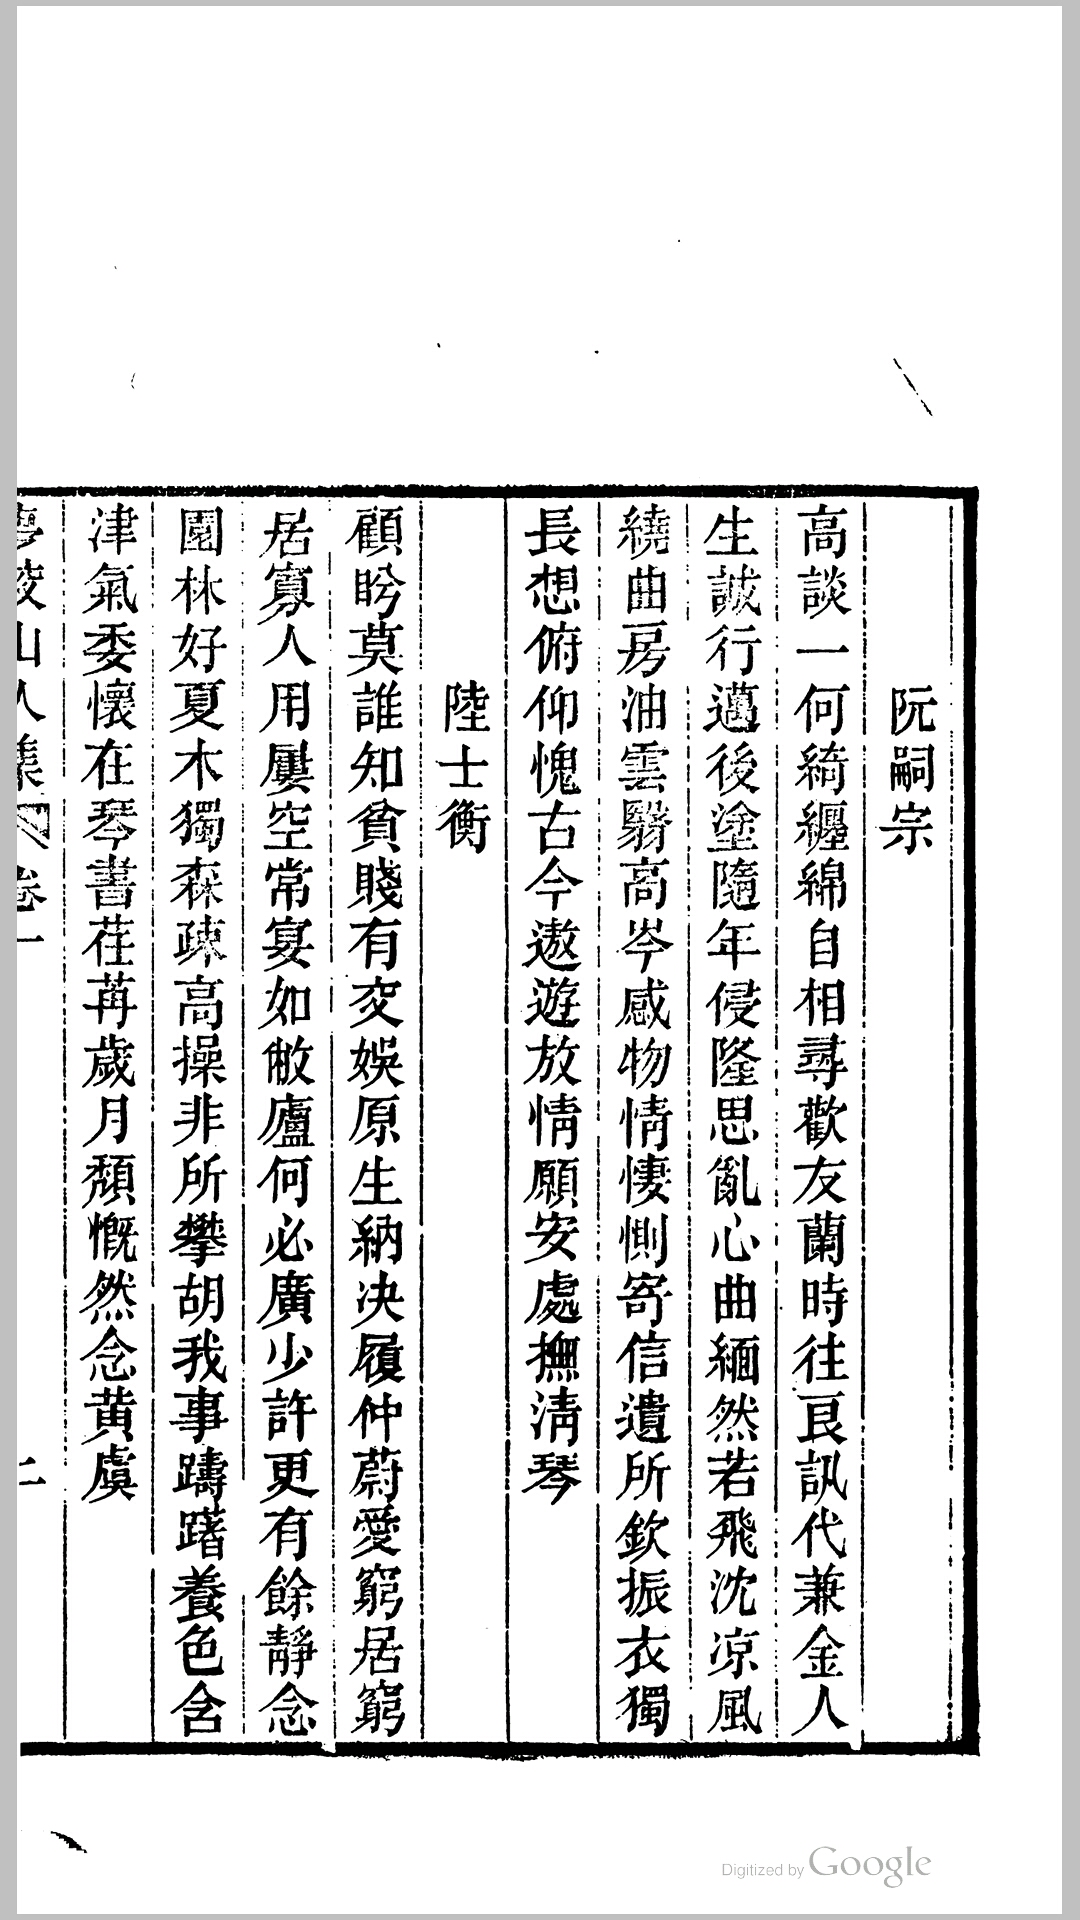 阮嗣宗
高談一何綺纏綿自相尋歡友蘭時往良訊代兼金人
生誠行邁後塗隨年侵隆思亂心曲緬然若飛沈凉風
繞曲房油雲翳高岑感物情悽惻寄信遺所欽振衣獨
長想俯仰愧古今遨遊放情願安處撫淸琴
陸士衡
顧盻莫誰知貧賤有交娛原生納决履仲蔚愛窮居窮
居寡人用屢空常宴如敝廬何必廣少許更有餘靜念
園林好夏木獨森疎高操非所攀胡我事躊躇養色含
津氣委懷在琴書荏苒歲月頹慨然念黃虞
山人集 卷一 二
Digitized by Google